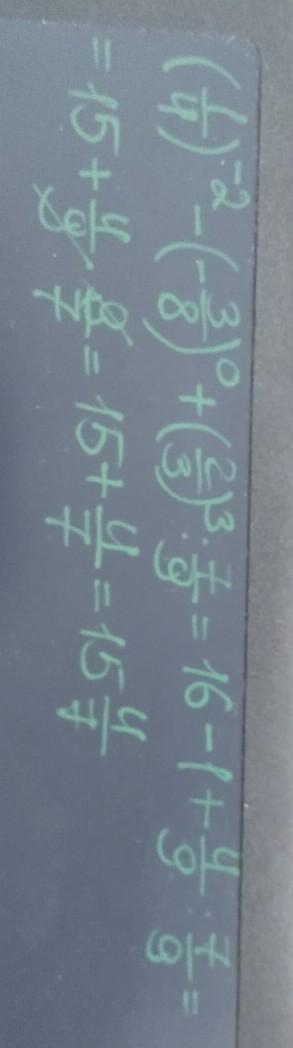 (1/4)⁻² - (-3/8)⁰ + (2/3)³ : 7/9 = 16 - 1 + 4/9 : 7/9 =
= 15 + 4/9 · 9/7 = 15 + 4/7 = 15 4/7